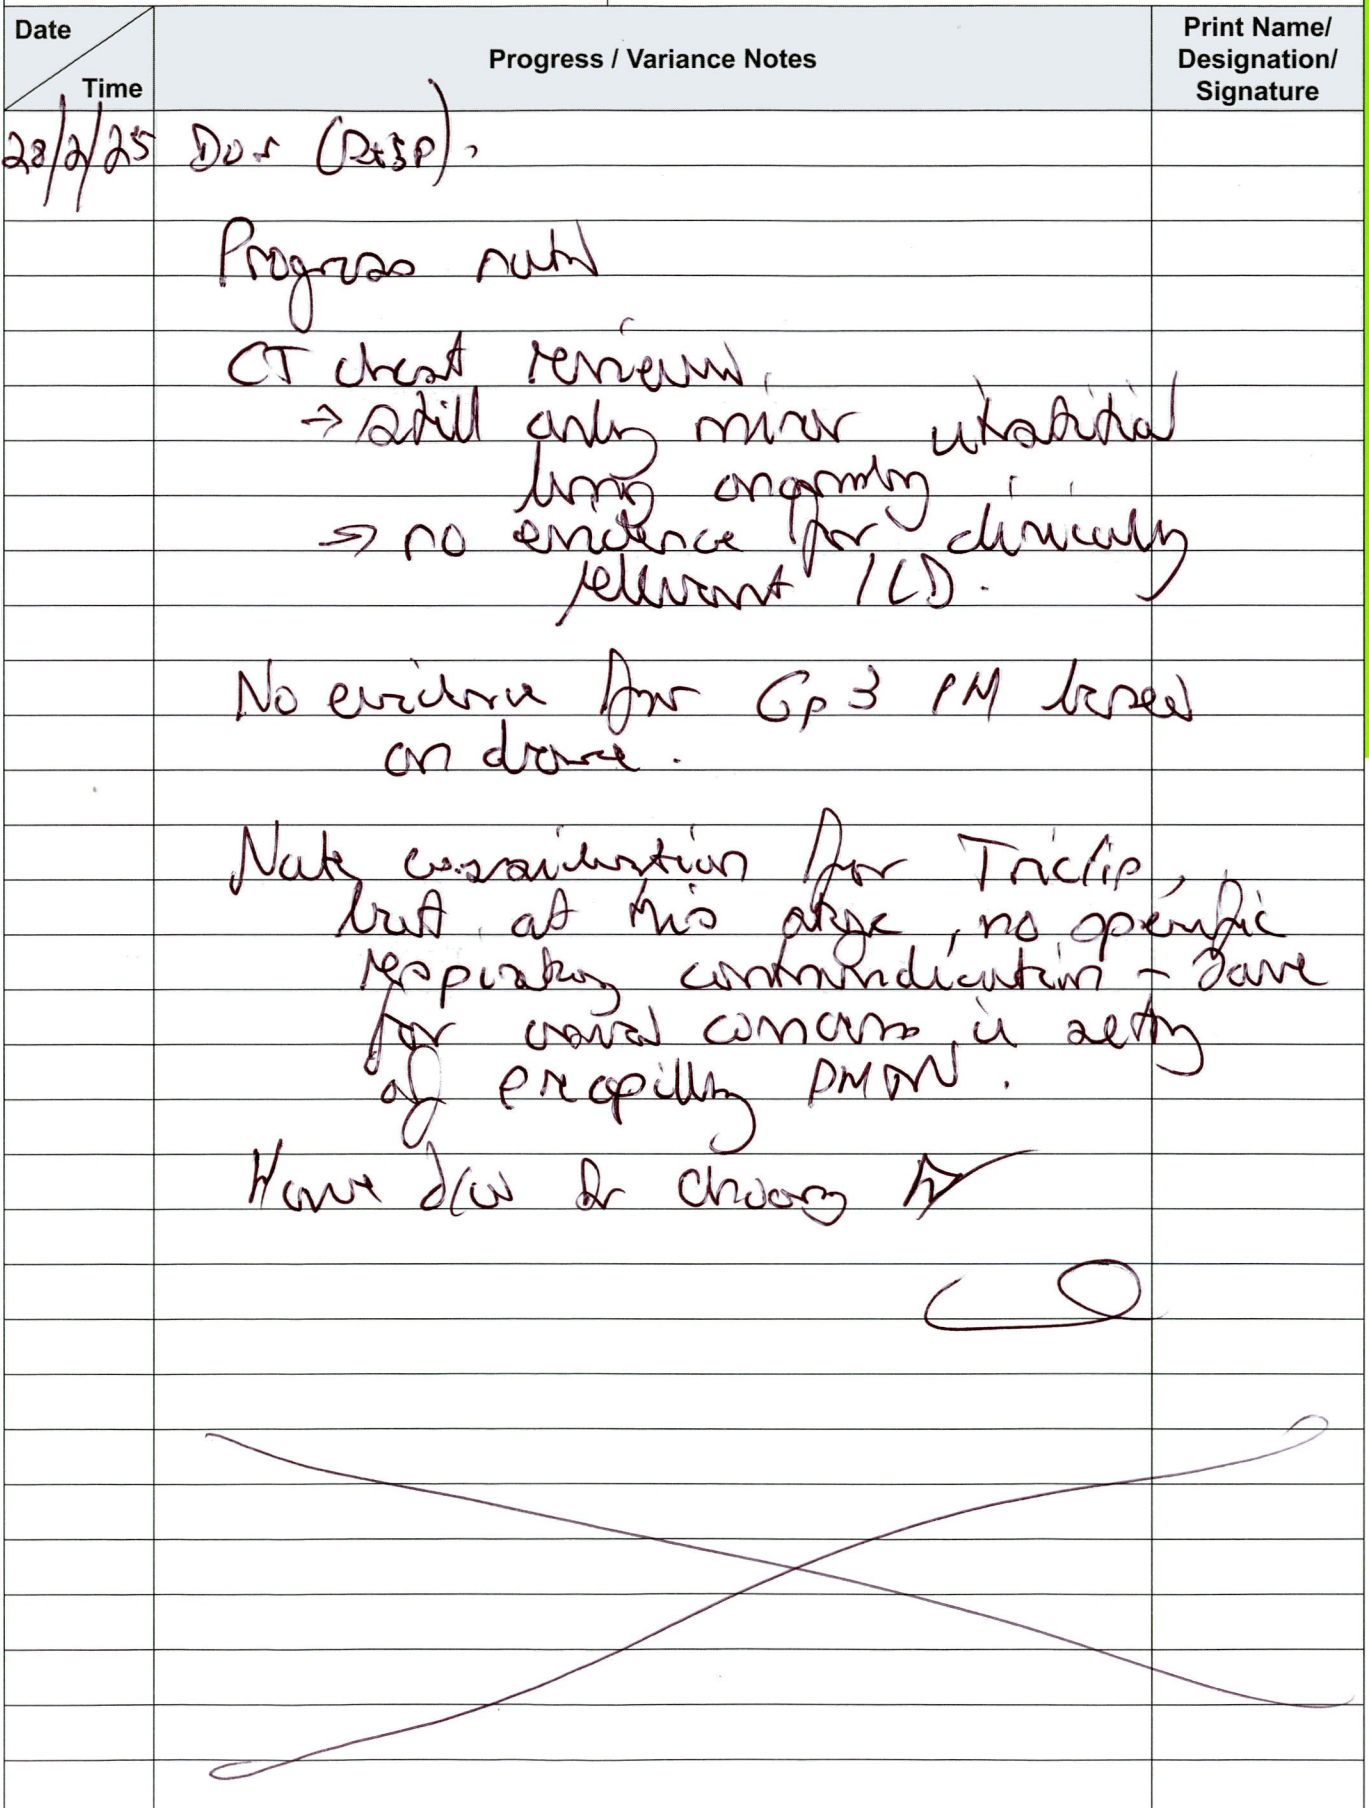 Date
Time
Progress / Variance Notes
Print Name/
Designation/
Signature
28/2/25
(Resp).
Progress noted
CT chest reviewed.
→ still only minor interstitial
lung
→ no evidence for clinically
relevant ILD.
No evidence for Gp 3 PH based
on above.
Note consideration for Triclip,
but at this stage, no specific
respiratory contraindication - save
for usual concerns in setting
of precapillary
Have d/w Dr